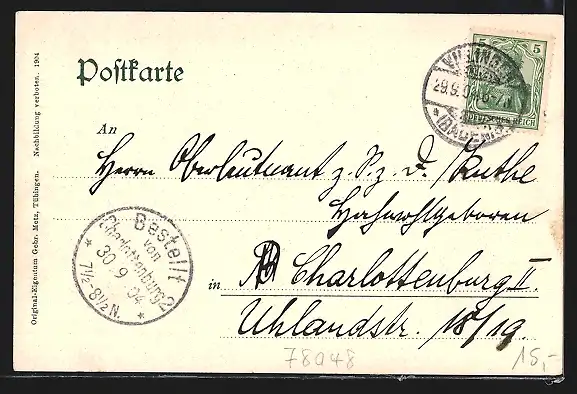 Postkarte
5 5
DEUTSCHES REICH
29.9.04
(BADEN)
An
Herrn Oberleutnant z. D. z. D. Knothe
Hochwohlgeboren
in Charlottenburg II.
Uhlandstr. 18/19.
Bestellt
von
Charlottenburg 2
30.9.04
7½-8½N.
Original-Eigentum Gebr. Metz, Tübingen. Nachbildung verboten. 1904
78048
15,-